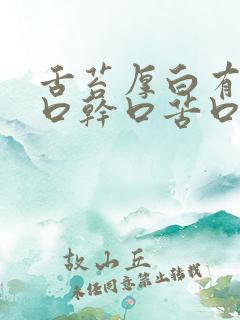 舌苔厚白有
口幹口苦口
故山丘
未经同意禁止转载